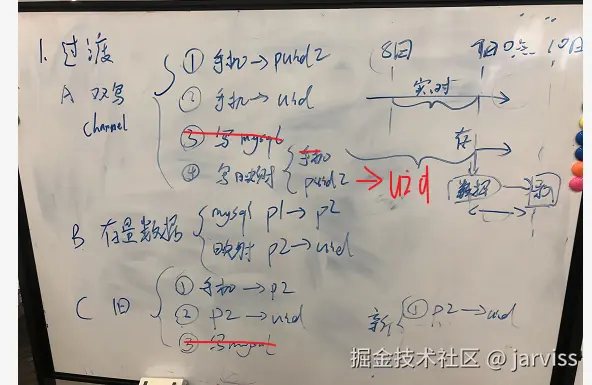 1. 过渡
A 双写
channel
① 手机→puid2
② 手机→uid
③ 写mysql
④ 写映射 { 手机
puid2 → uid
8日 9日0点 10日
实时
存
数据
B 存量数据 { mysql p1→p2
映射 p2→uid
C 旧 { ① 手机→p2
② p2→uid
③ 写mysql
新 { ① p2→uid
掘金技术社区 @ jarviss